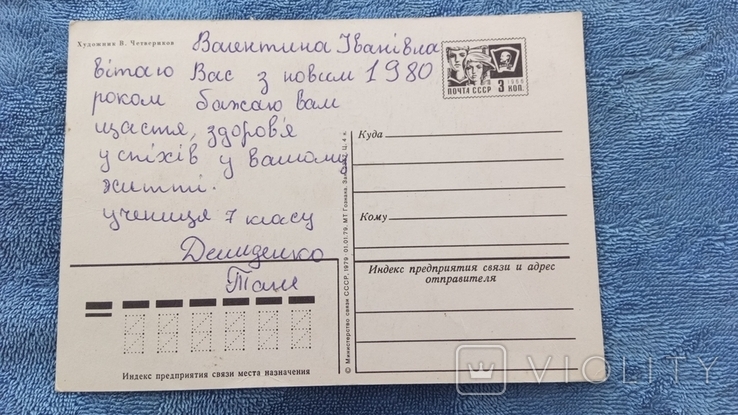 Художник В. Четвериков
Валентина Іванівна
вітаю Вас з новим 1980
роком бажаю вам
щастя, здоров'я
успіхів у вашому
житті.
учениця 7 класу
Демиденко
Таня
ПОЧТА СССР 3 КОП.
1966
Куда
Кому
Индекс предприятия связи и адрес
отправителя
Индекс предприятия связи места назначения
© Министерство связи СССР, 1979. 01.01.79. МТ Гознака. Ц. 4 к.
VIOLITY